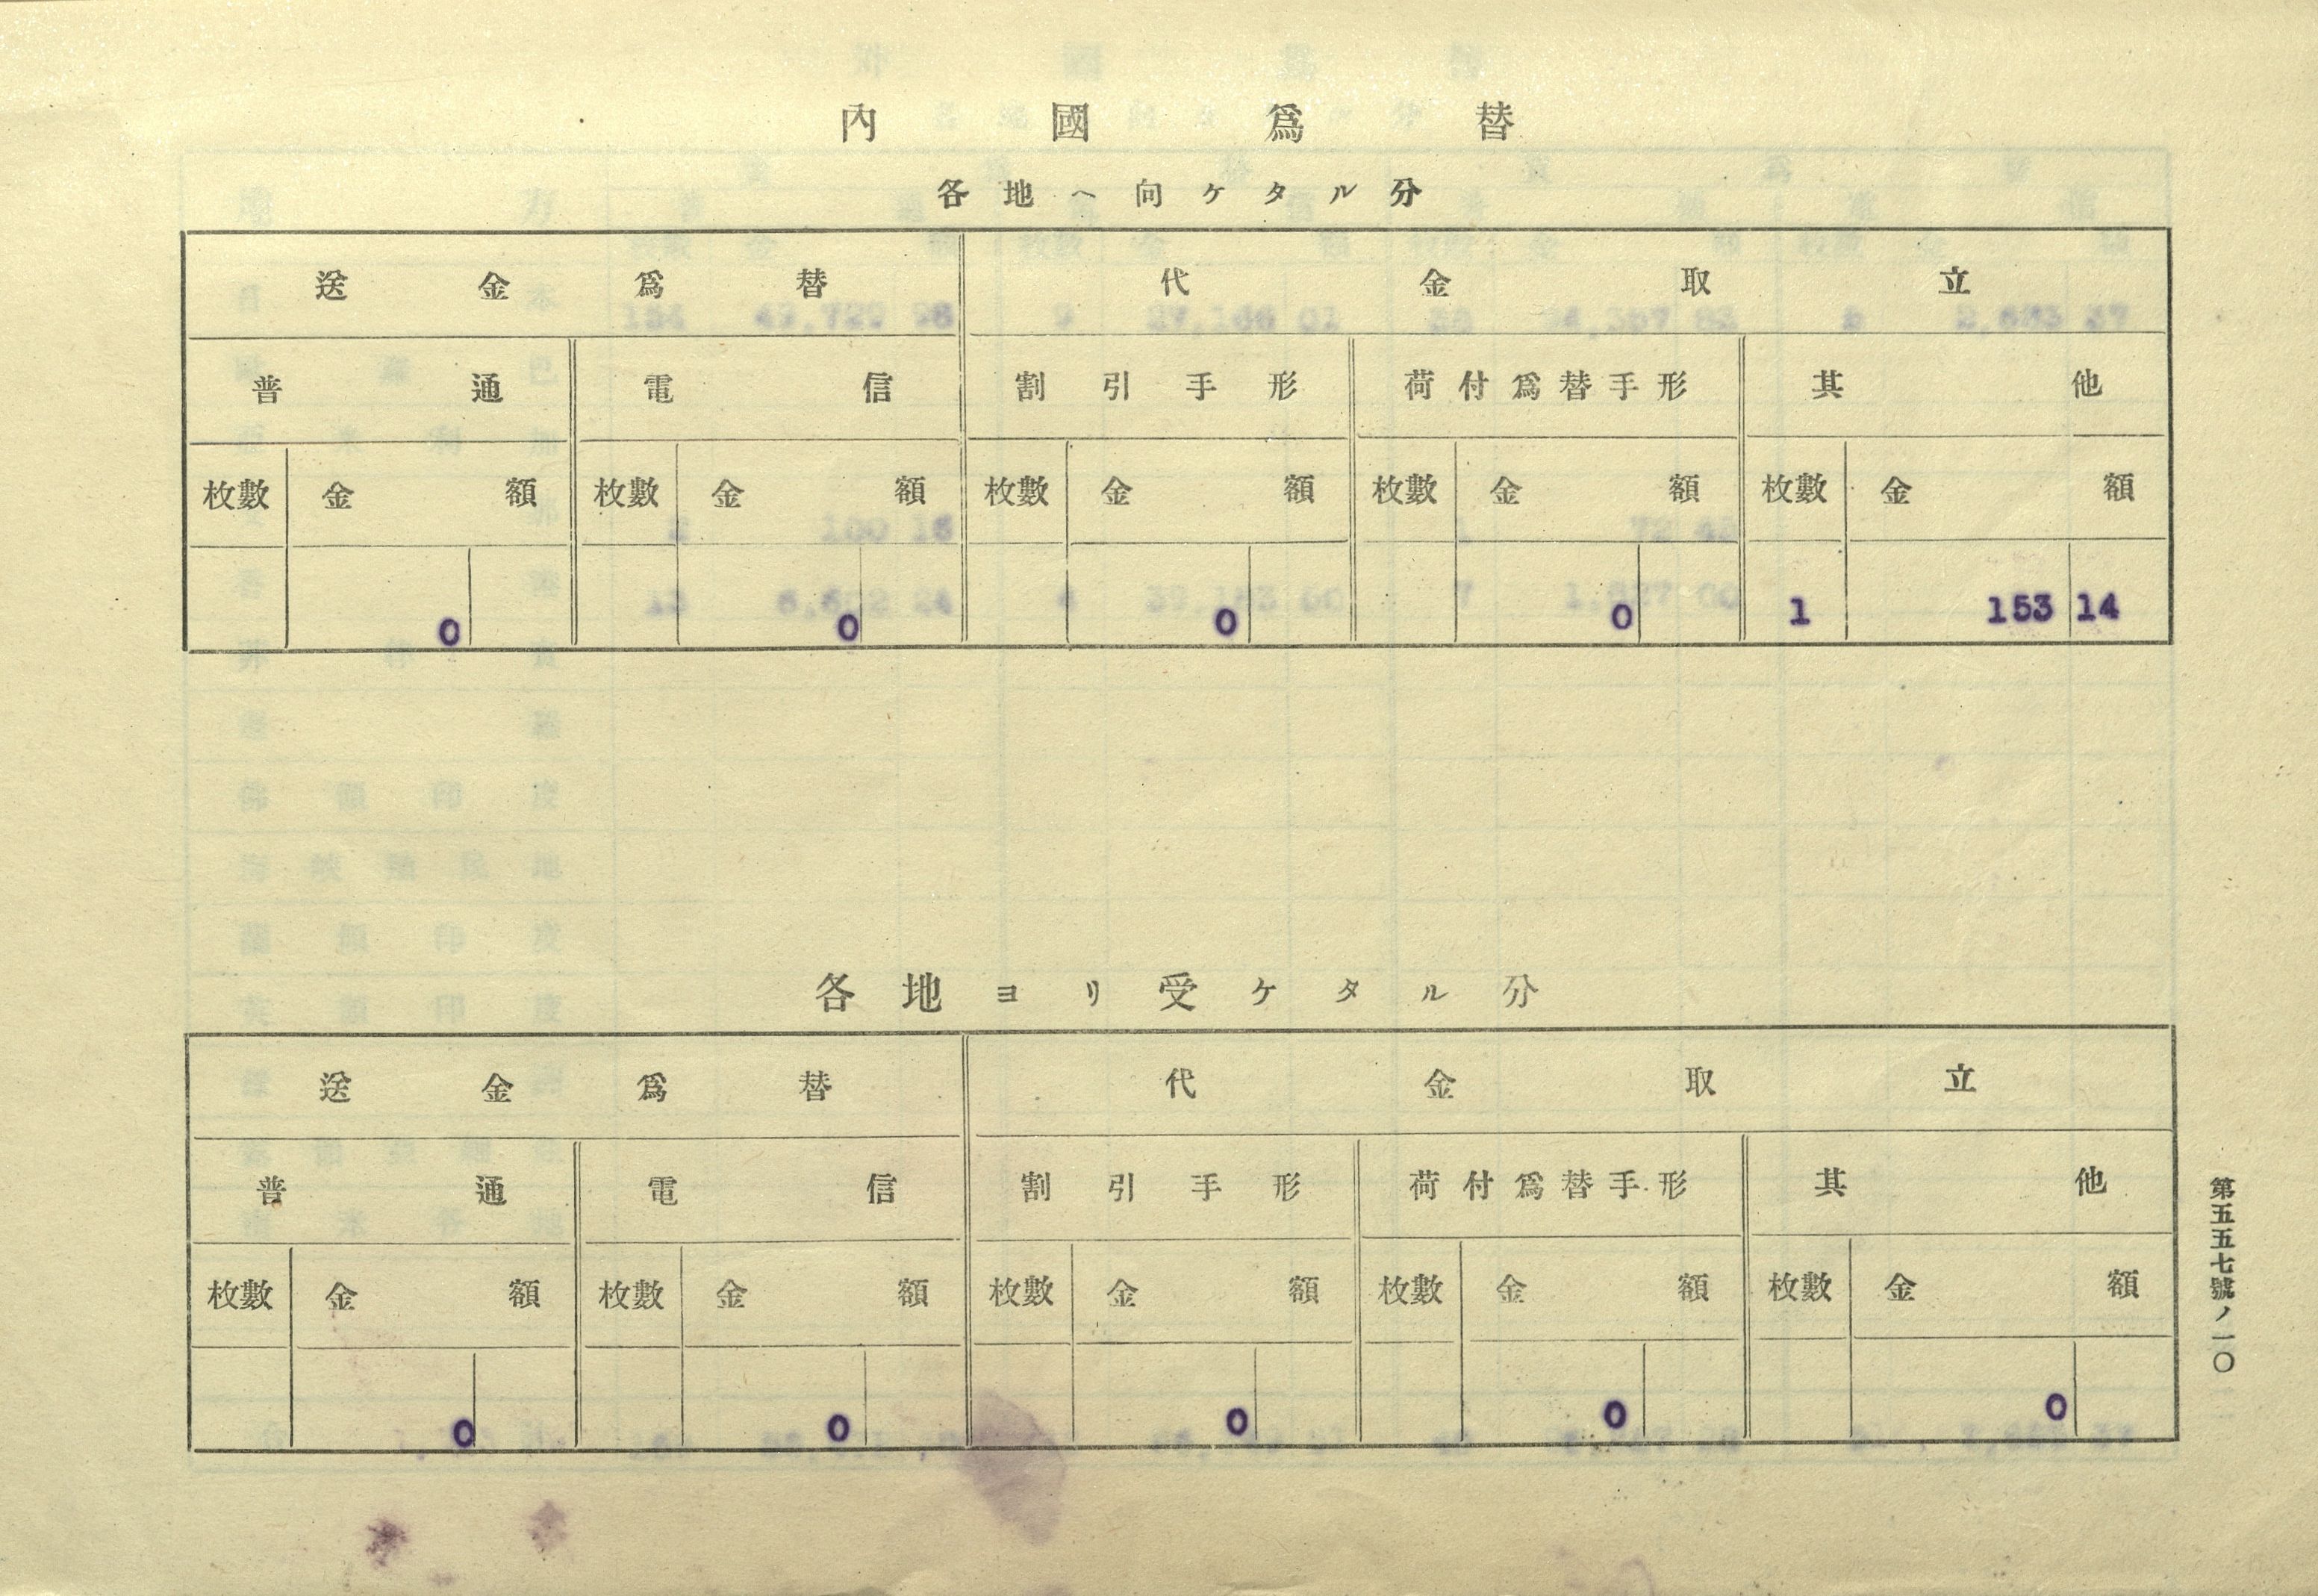 內國爲替
各地ヘ向ケタル分
送金爲替 代金取立
普通 電信 割引手形 荷付爲替手形 其他
枚數 金額 枚數 金額 枚數 金額 枚數 金額 枚數 金額
0 0 0 0 1 153 14
各地ヨリ受ケタル分
送金爲替 代金取立
普通 電信 割引手形 荷付爲替手形 其他
枚數 金額 枚數 金額 枚數 金額 枚數 金額 枚數 金額
0 0 0 0 0
第五五七號ノ一〇